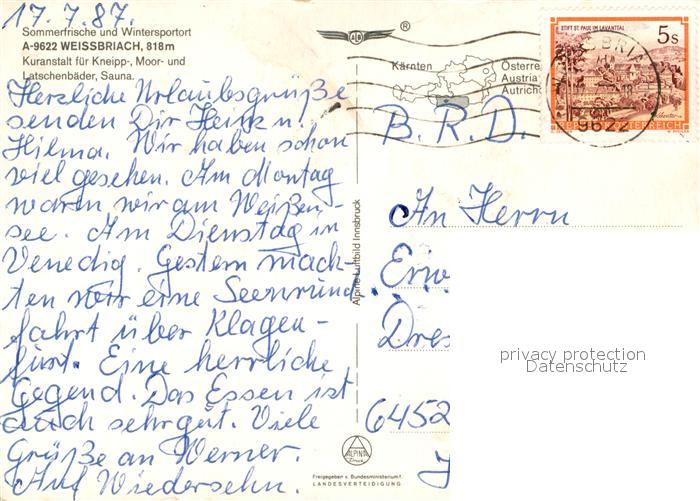 17.7.87.
Sommerfrische und Wintersportort
A-9622 WEISSBRIACH, 818m
Kuranstalt für Kneipp-, Moor- und
Latschenbäder, Sauna.
Herzliche Urlaubsgrüße
senden Dir Heinz u.
Hilma. Wir haben schon
viel gesehen. Am Montag
waren wir am Weißen-
see. Am Dienstag in
Venedig. Gestern mach-
ten wir eine Seenrund
fahrt über Klagen-
furt. Eine herrliche
Gegend. Das Essen ist
auch sehr gut. Viele
Grüße an Werner.
Auf Wiedersehn.
®
Kärnten
Österre
Austria
Autrich
STIFT ST. PAUL IM LAVANTTAL
5s
REPUBLIK ÖSTERREICH
9622
B.R.D.
An Herrn
Erw
Dres
6452
privacy protection
Datenschutz
Alpine Luftbild Innsbruck
ALPINE
Freigegeben v. Bundesministerium f.
LANDESVERTEIDIGUNG